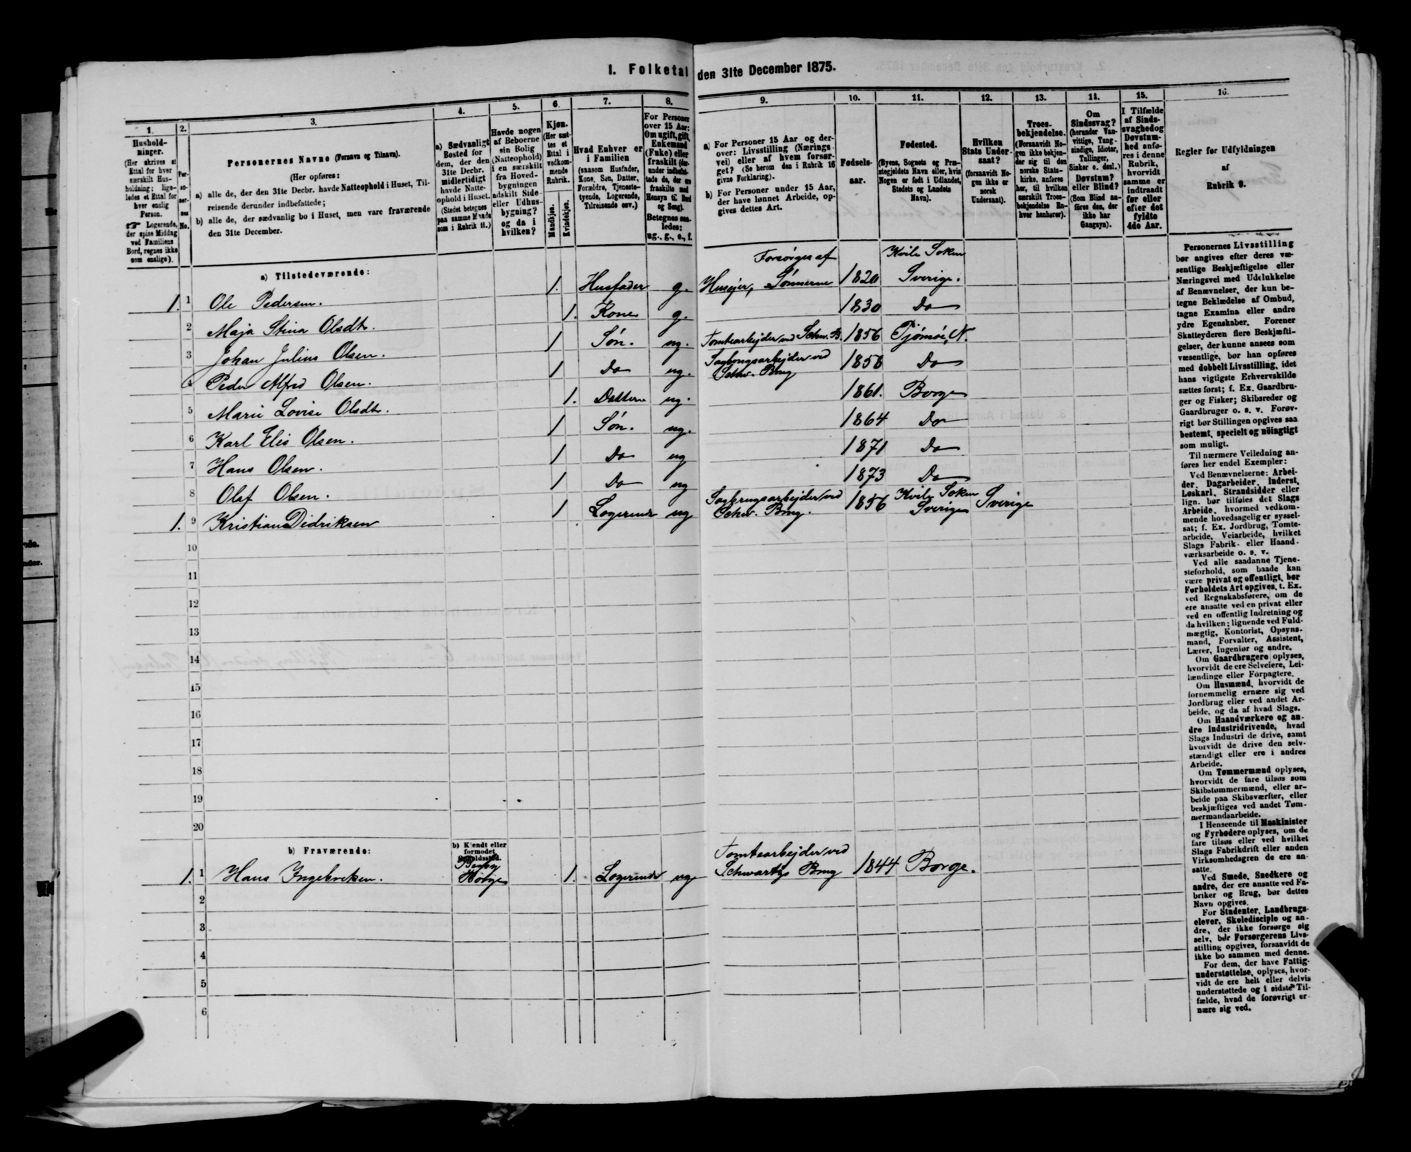 I. Folketal den 31te December 1875.
1. 2. 3. 4. 5. 6. 7. 8. 9. 10. 11. 12. 13. 14. 15. 16.
Husholdninger.
(Her skrives et Ettal for hver særskilt Husholdning; ligeledes et Ettal for hver enslig Person.
Logerende, der spise Middag ved Familiens Bord, regnes ikke som enslige).
Personernes No.
Personernes Navne (Fornavn og Tilnavn).
(Her opføres:
a) alle de, der den 31te Decbr. havde Natteophold i Huset, Tilreisende derunder indbefattede;
b) alle de, der sædvanlig bo i Huset, men vare fraværende den 31te December.
Kjøn.
Mandkjøn.
Kvindekjøn.
Hvad Enhver er i Familien
(saasom Husfader, Kone, Søn, Datter, Forældre, Tjenestetyende, Logerende, Tilreisende osv.)
a) For Personer 15 Aar og derover: Livsstilling (Næringsvei) eller af hvem forsørget? (Se herom den i Rubrik 16 givne Forklaring).
b) For Personer under 15 Aar, der have lønnet Arbeide, opgives dettes Art.
Fødselsaar.
Fødested.
(Byens, Sognets og Præstegjeldets Navn eller, hvis Nogen er født i Udlandet, Stedets og Landets Navn).
Hvilken Stats Undersaat?
(forsaavidt Nogen ikke er norsk Undersaat).
Regler for Udfyldningen
af
Rubrik 9.
a) Tilstedeværende:
1. 1 Ole Pedersen. 1. Husfader g. Huseier, Forsørges af Sønnerne 1820 Kville Soken Sverige.
2 Maja Stina Olsdtr. 1. Kone g. 1830 Do
3 Johan Julius Olsen. 1 Søn. ug. Tomtearbejder ved Schw. B. 1856 Tjømøe, N.
4 Peder Alfred Olsen. 1 Do ug. Sagbrugsarbejder ved Schw. Brug 1858 Do
5 Marie Lovise Olsdtr. 1. Datter ug. 1861. Borge
6 Karl Elis Olsen. 1 Søn. ug. 1864 Do
7 Hans Olsen. 1 Do ug 1871 Do
8 Olaf Olsen. 1 Do ug 1873 Do
1. 9 Kristian Didriksen 1 Logerende ug Sagbrugsarbejder ved Schw. Brug. 1856 Kville Soken Sverige Sverige
10
11
12
13
14
15
16
17
18
19
20
b) Fraværende:
b) Kjendt eller formodet Opholdssted.
1. 1 Hans Ingebretsen. Borge 1. Logerende ug Tomtearbejder ved Schwartz's Brug 1844 Borge.
2
3
4
5
6
Personernes Livsstilling bør angives efter deres væsentlige Beskjæftigelse eller Næringsvei med Udelukkelse af Benævnelser, der kun betegne Beklædelse af Ombud, tagne Examina eller andre ydre Egenskaber. Forener Skatteyderen flere Beskjæftigelser, der kunne ansees som væsentlige, bør han opføres med dobbelt Livsstilling, idet hans vigtigste Erhvervskilde sættes først; f. Ex. Gaardbruger og Fisker; Skibsreder og Gaardbruger o. s. v. Forøvrigt bør Stillingen opgives saa bestemt, specielt og nøiagtigt som muligt.
Til nærmere Veiledning anføres her endel Exempler:
Ved Benævnelserne: Arbeider, Dagarbeider, Inderst, Løskarl, Strandsidder eller lign. bør tilføies det Slags Arbeide, hvormed vedkommende hovedsagelig er sysselsat; f. Ex. Jordbrug, Tomtearbeide, Veiarbeide, hvilket Slags Fabrik- eller Haandværksarbeide o. s. v.
Ved alle saadanne Tjenesteforhold, som baade kan være privat og offentligt, bør Forholdets Art opgives, t. Ex. ved Regnskabsførere, om de ere ansatte ved en privat eller ved en offentlig Indretning og da hvilken; lignende ved Fuldmægtig, Kontorist, Opsynsmand, Forvalter, Assistent, Lærer, Ingeniør og andre.
Om Gaardbrugere oplyses, hvorvidt de ere Selveiere, Leilændinge eller Forpagtere.
Om Husmænd, hvorvidt de fornemmelig ernære sig ved Jordbrug eller ved andet Arbeide, og da af hvad Slags.
Om Haandværkere og andre Industridrivende, hvad Slags Industri de drive, samt hvorvidt de drive den selvstændigt eller ere i andres Arbeide.
Om Tømmermænd oplyses, hvorvidt de fare tilsøs som Skibstømmermænd, eller arbeide paa Skibsværfter, eller beskjæftiges ved andet Tømmermandsarbeide.
I Henseende til Maskinister og Fyrbødere oplyses, om de fare tilsøs eller ved hvilket Slags Fabrikdrift eller anden Virksomhedsgren de ere ansatte.
Ved Smede, Snedkere og andre, der ere ansatte ved Fabriker og Brug, bør dettes Navn opgives.
For Studenter, Landbrugselever, Skoledisciple og andre, der ikke forsørge sig selv, bør Forsørgerens Livsstilling opgives, forsaavidt de ikke bo sammen med denne.
For dem, der have Fattigunderstøttelse, oplyses, hvorvidt de ere helt eller delvis understøttede og i sidste Tilfælde, hvad de forøvrigt ernære sig ved.